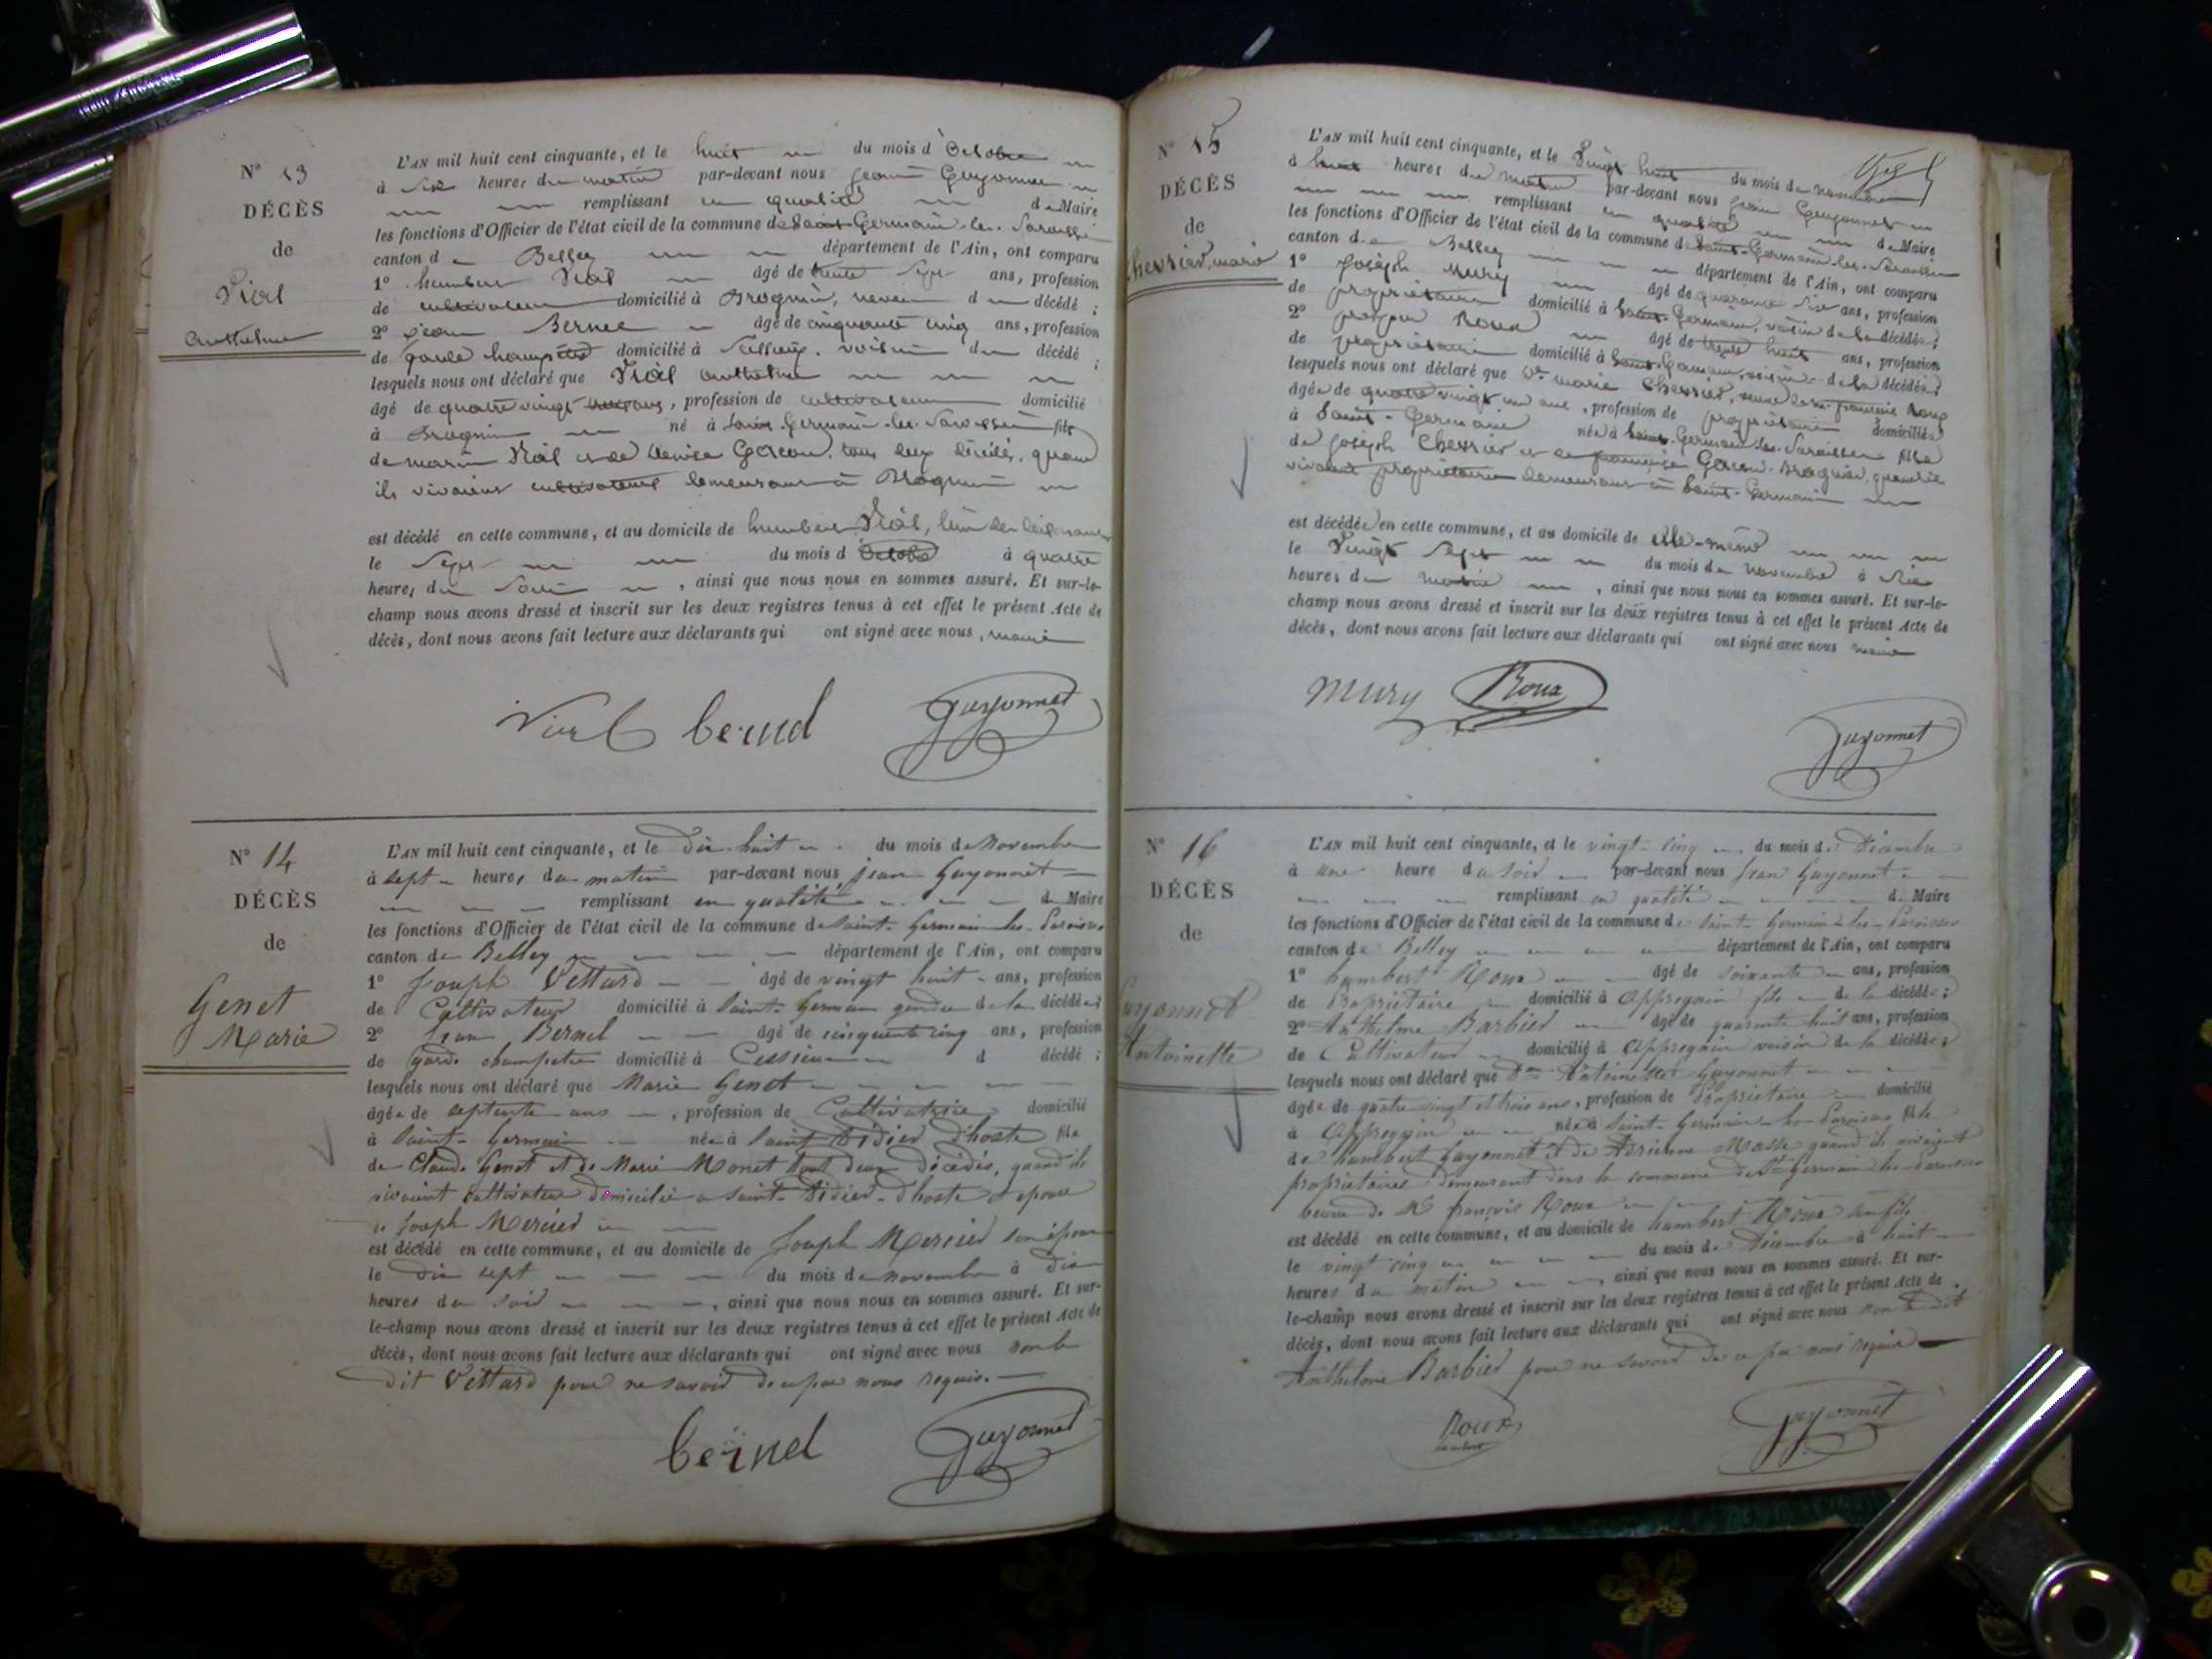 N° 13
DÉCÈS
de
Vial
Anthelme
L'AN mil huit cent cinquante, et le huit du mois d'Octobre
à six heures du matin par-devant nous jean Guyonnet
remplissant en qualité de Maire
les fonctions d'Officier de l'état civil de la commune de Saint-Germain-les-Paroisses
canton de Belley département de l'Ain, ont comparu
1° humbert Vial âgé de trente sept ans, profession
de cultivateur domicilié à Brognin, neveu du décédé ;
2° jean Bernel âgé de cinquante cinq ans, profession
de garde champêtre domicilié à voisin du décédé ;
lesquels nous ont déclaré que Vial anthelme
âgé de quatre vingt ans, profession de cultivateur domicilié
à Brognin né à Saint-Germain-les-Paroisses fils
de Vial et de tous deux décédés, quand
ils vivaient cultivateurs demeurant à Brognin
est décédé en cette commune, et au domicile de humbert Vial, l'un des déclarants
le sept du mois d'Octobre à quatre
heures du soir, ainsi que nous nous en sommes assuré. Et sur-le-
champ nous avons dressé et inscrit sur les deux registres tenus à cet effet le présent Acte de
décès, dont nous avons fait lecture aux déclarants qui ont signé avec nous, maire
Vial bernel Guyonnet
N° 14
DÉCÈS
de
Genet
Marie
L'AN mil huit cent cinquante, et le dix-huit du mois de Novembre
à sept heures du matin par-devant nous jean Guyonnet
remplissant en qualité de Maire
les fonctions d'Officier de l'état civil de la commune de Saint-Germain-les-Paroisses
canton de Belley département de l'Ain, ont comparu
1° Joseph Vettard âgé de vingt huit ans, profession
de Cultivateur domicilié à Saint-Germain gendre de la décédée ;
2° Jean Bernel âgé de cinquante cinq ans, profession
de garde champetre domicilié à Cessieu d décédé ;
lesquels nous ont déclaré que Marie Genet
âgée de septante ans, profession de Cultivatrice domicilié
à Saint-Germain née à Saint Didier d'hoste fille
de Claude Genet et de Marie Monet tout deux décédés, quand ils
vivaient cultivateur domicilié a Saint-Didier-d'hoste et epouse
de Joseph Mercier
est décédé en cette commune, et au domicile de Joseph Mercier son époux
le dix sept du mois de novembre à dix
heures du soir, ainsi que nous nous en sommes assuré. Et sur-
le-champ nous avons dressé et inscrit sur les deux registres tenus à cet effet le présent Acte de
décès, dont nous avons fait lecture aux déclarants qui ont signé avec nous non le
dit Vettard pour ne savoir de ce par nous requis.
beinel Guyonnet
N° 15
DÉCÈS
de
Chevrier, marie
L'AN mil huit cent cinquante, et le Vingt huit du mois de novembre
à huit heures du matin par-devant nous jean Guyonnet
remplissant en qualité de Maire
les fonctions d'Officier de l'état civil de la commune de Saint-Germain-les-Paroisses
canton de Belley département de l'Ain, ont comparu
1° joseph Mury âgé de quarante six ans, profession
de propriétaire domicilié à Saint-Germain, voisin de la décédée ;
2° Roux âgé de trente huit ans, profession
de propriétaire domicilié à Saint-Germain, voisin de la décédée ;
lesquels nous ont déclaré que marie Chevrier, veuve françois Roux
âgée de quatre vingt un ans, profession de propriétaire domiciliée
à Saint-Germain née à Saint-Germain-les-Paroisses fille
de joseph Chevrier et de françoise quand ils
vivaient propriétaires demeurant à Saint-Germain
est décédée en cette commune, et au domicile de elle-même
le Vingt sept du mois de novembre à six
heures du matin, ainsi que nous nous en sommes assuré. Et sur-le-
champ nous avons dressé et inscrit sur les deux registres tenus à cet effet le présent Acte de
décès, dont nous avons fait lecture aux déclarants qui ont signé avec nous maire
Mury Roux
Guyonnet
N° 16
DÉCÈS
de
Guyonnet
Antoinette
L'AN mil huit cent cinquante, et le vingt-cinq du mois de Décembre
à une heure du soir par-devant nous Jean Guyonnet
remplissant en qualité de Maire
les fonctions d'Officier de l'état civil de la commune de Saint-Germain-les-Paroisses
canton de Belley département de l'Ain, ont comparu
1° humbert Roux âgé de soixante ans, profession
de Propriétaire domicilié à Appregnin fils de la décédée ;
2° Anthelme Barbier âgé de quarante huit ans, profession
de Cultivateur domicilié à Appregnin voisin de la décédée ;
lesquels nous ont déclaré que Antoinette Guyonnet
âgée de quatre-vingt et trois ans, profession de Propriétaire domicilié
à Appregnin née à Saint-Germain-les-Paroisses fille
de humbert Guyonnet et de Adrienne Masse quand ils vivaient
propriétaires demeurant dans la commune de St Germain-les-Paroisses
veuve de françois Roux
est décédé en cette commune, et au domicile de humbert Roux son fils
le vingt cinq du mois de Décembre à huit
heures du matin, ainsi que nous nous en sommes assuré. Et sur-
le-champ nous avons dressé et inscrit sur les deux registres tenus à cet effet le présent Acte de
décès, dont nous avons fait lecture aux déclarants qui ont signé avec nous non le dit
Anthelme Barbier pour ne savoir de ce par nous requis
Roux Guyonnet